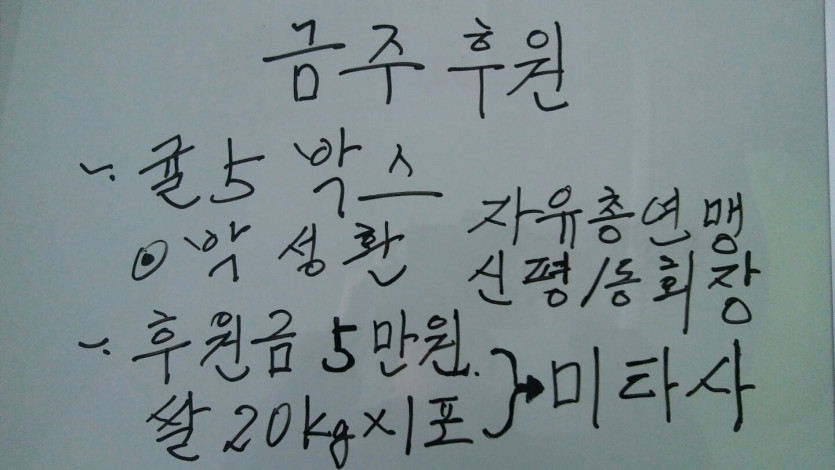 금주 후원
~. 귤5 박스
⊙박성환 자유총연맹
신평/동회장
~. 후원금 5만원.
쌀 20kg×1포 } → 미타사